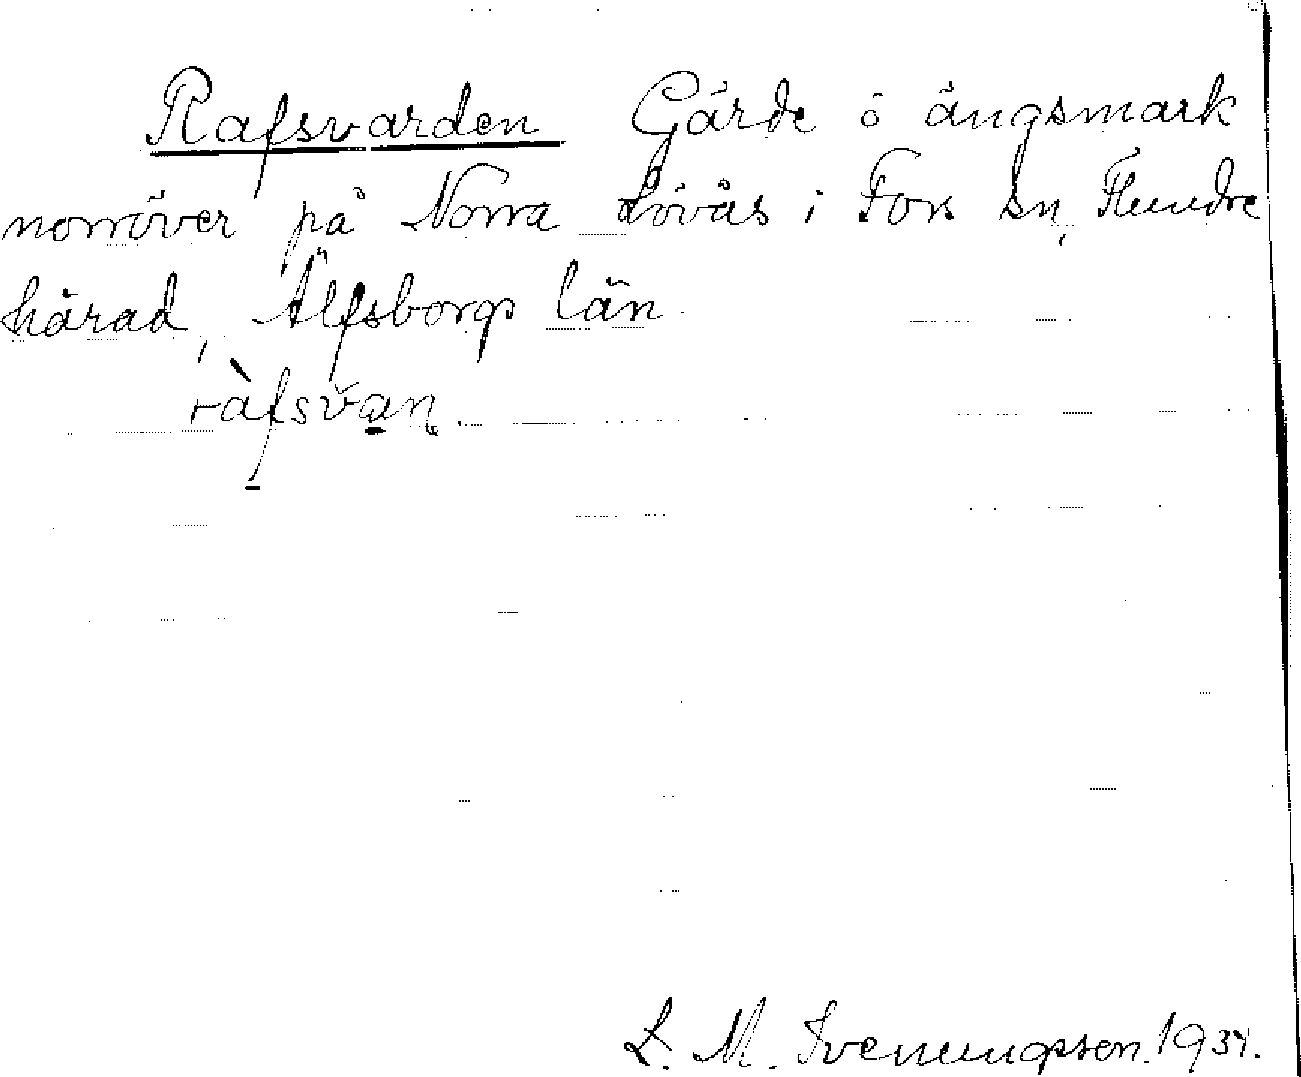 Rafsvarden Gärde o ängsmark
norröver på Norra Lövås i Fors sn, Flundre
härad, Älfsborgs län
ràfsvan
L. M. Svenungsson. 1934.